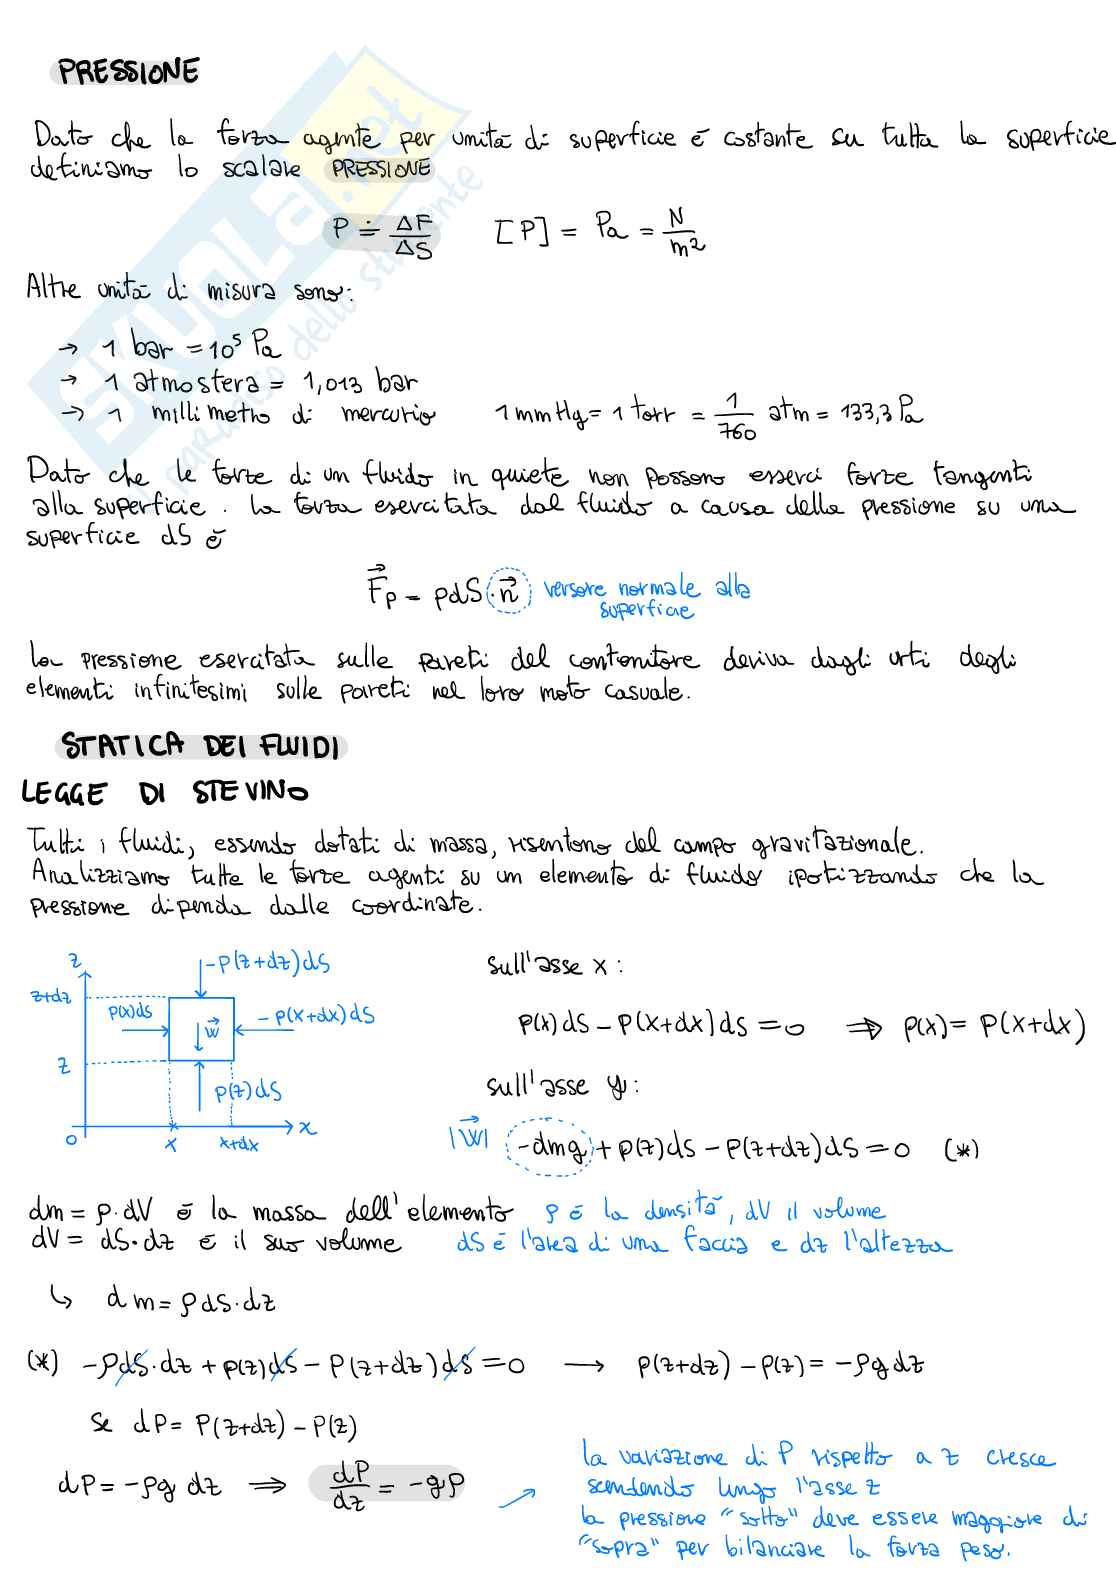 PRESSIONE
Dato che la forza agente per unità di superficie è costante su tutta la superficie
definiamo lo scalare PRESSIONE
P ≐ ΔF/ΔS [P] = Pa = N/m²
Altre unità di misura sono:
→ 1 bar = 10⁵ Pa
→ 1 atmosfera = 1,013 bar
→ 1 millimetro di mercurio 1 mmHg = 1 torr = 1/760 atm = 133,3 Pa
Dato che le forze di un fluido in quiete non possono esserci forze tangenti
alla superficie. La forza esercitata dal fluido a causa della pressione su una
superficie dS è
F⃗p = pdS · n⃗ versore normale alla
superficie
La pressione esercitata sulle pareti del contenitore deriva dagli urti degli
elementi infinitesimi sulle pareti nel loro moto casuale.
STATICA DEI FLUIDI
LEGGE DI STEVINO
Tutti i fluidi, essendo dotati di massa, risentono del campo gravitazionale.
Analizziamo tutte le forze agenti su un elemento di fluido ipotizzando che la
pressione dipenda dalle coordinate.
z
-P(z+dz)dS
z+dz
p(x)dS
W⃗
-P(x+dx)dS
z
P(z)dS
0
x
x+dx
x
sull'asse x:
p(x)dS - P(x+dx)dS = 0 ⇒ p(x) = P(x+dx)
sull'asse y:
|W⃗| -dmg + p(z)dS - P(z+dz)dS = 0 (*)
dm = ρ·dV è la massa dell'elemento ρ è la densità, dV il volume
dV = dS·dz è il suo volume dS è l'area di una faccia e dz l'altezza
↳ dm = ρdS·dz
(*) -ρdS·dz + p(z)dS - P(z+dz)dS = 0 → p(z+dz) - p(z) = -ρgdz
Se dP = P(z+dz) - P(z)
dP = -ρg dz ⇒ dP/dz = -gρ
la variazione di P rispetto a z cresce
scendendo lungo l'asse z
la pressione "sotto" deve essere maggiore di
"sopra" per bilanciare la forza peso.
SKUOLA.net
il paradiso dello studente